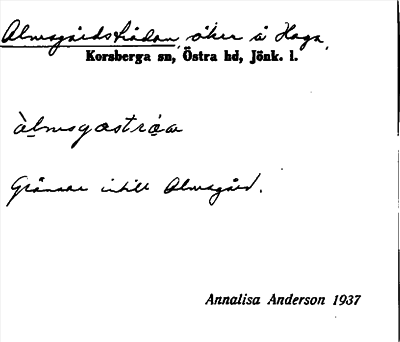 Almsgårdstrådan, åker å Haga,
Korsberga sn, Östra hd, Jönk. l.
àlmsgastráa
Gränsar intill Almsgård.
Annalisa Anderson 1937